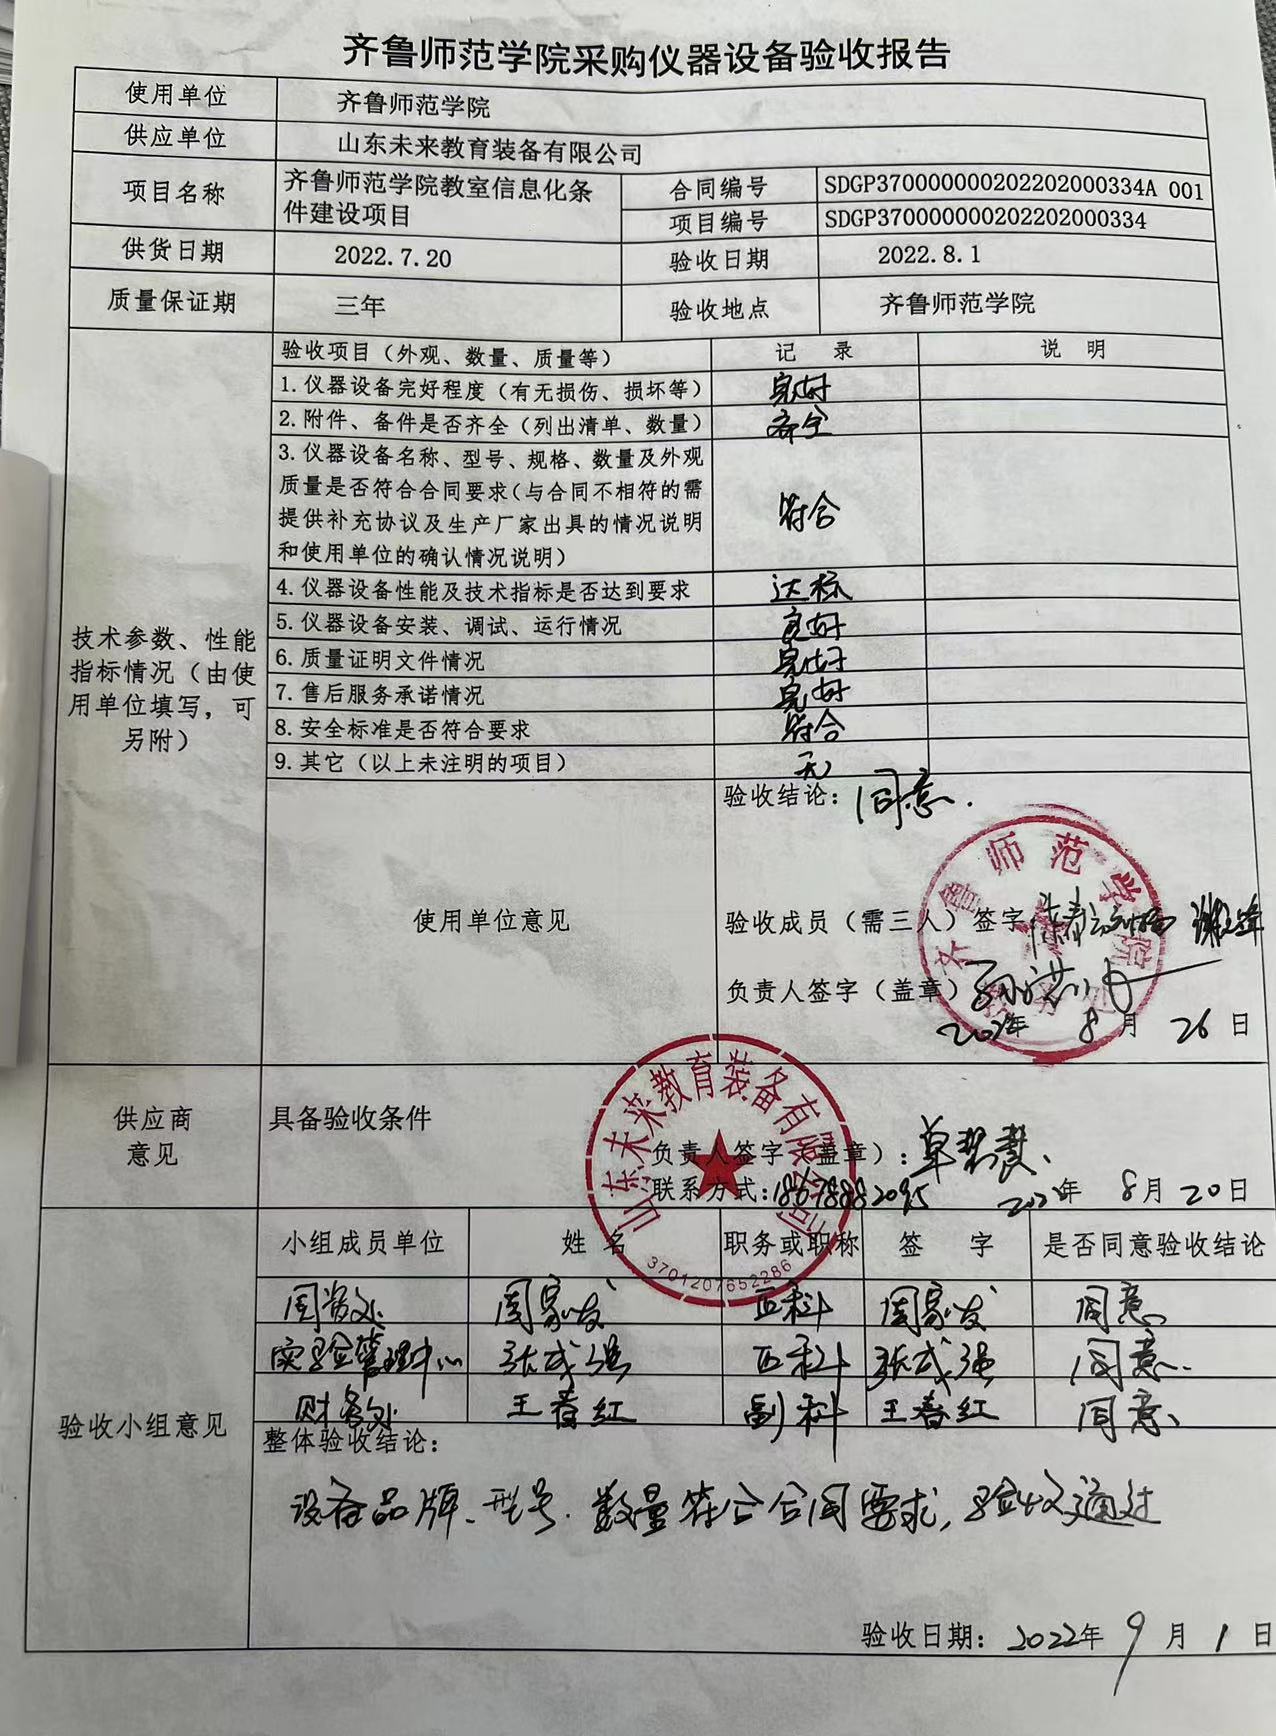 齐鲁师范学院采购仪器设备验收报告
使用单位 齐鲁师范学院
供应单位 山东未来教育装备有限公司
项目名称 齐鲁师范学院教室信息化条件建设项目 合同编号 SDGP370000000202202000334A 001
项目编号 SDGP370000000202202000334
供货日期 2022.7.20 验收日期 2022.8.1
质量保证期 三年 验收地点 齐鲁师范学院
技术参数、性能指标情况（由使用单位填写，可另附）
验收项目（外观、数量、质量等） 记 录 说 明
1.仪器设备完好程度（有无损伤、损坏等） 完好
2.附件、备件是否齐全（列出清单、数量） 齐全
3.仪器设备名称、型号、规格、数量及外观
质量是否符合合同要求（与合同不相符的需
提供补充协议及生产厂家出具的情况说明
和使用单位的确认情况说明） 符合
4.仪器设备性能及技术指标是否达到要求 达标
5.仪器设备安装、调试、运行情况 良好
6.质量证明文件情况 完好
7.售后服务承诺情况 完好
8.安全标准是否符合要求 符合
9.其它（以上未注明的项目） 无
使用单位意见
验收结论：同意.
齐鲁师范学院
验收成员（需三人）签字
负责人签字（盖章）
2022年 8月 26日
供应商
意见
具备验收条件
山东未来教育装备有限公司
3701207652286
负责人签字（盖章）：
联系方式：18678882095 2022年 8月20日
验收小组意见
小组成员单位 姓 名 职务或职称 签 字 是否同意验收结论
国资处 周家发 正科 周家发 同意
实验管理中心 张成强 正科 张成强 同意.
财务处 王春红 副科 王春红 同意
整体验收结论：
设备品牌、型号、数量符合合同要求，验收通过
验收日期：2022年 9月 1日